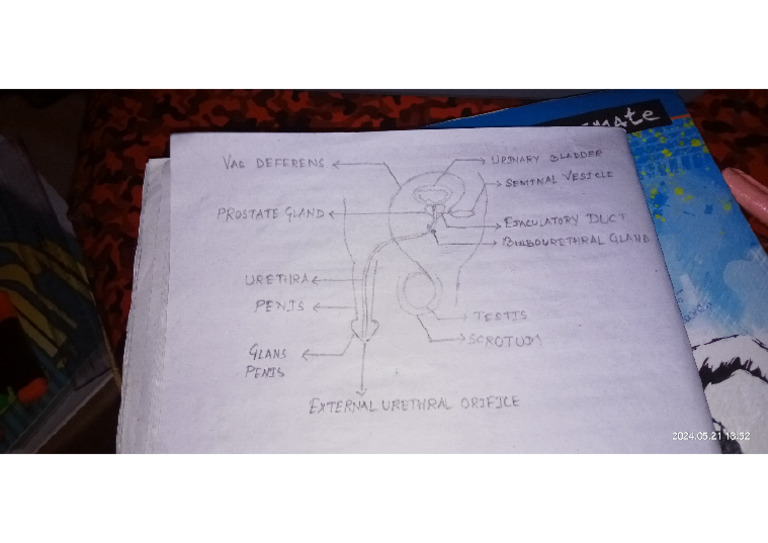 VAS DEFERENS
URINARY BLADDER
SEMINAL VESICLE
PROSTATE GLAND
EJACULATORY DUCT
BULBOURETHRAL GLAND
URETHRA
PENIS
TESTIS
SCROTUM
GLANS
PENIS
EXTERNAL URETHRAL ORIFICE
2024.05.21 18:52